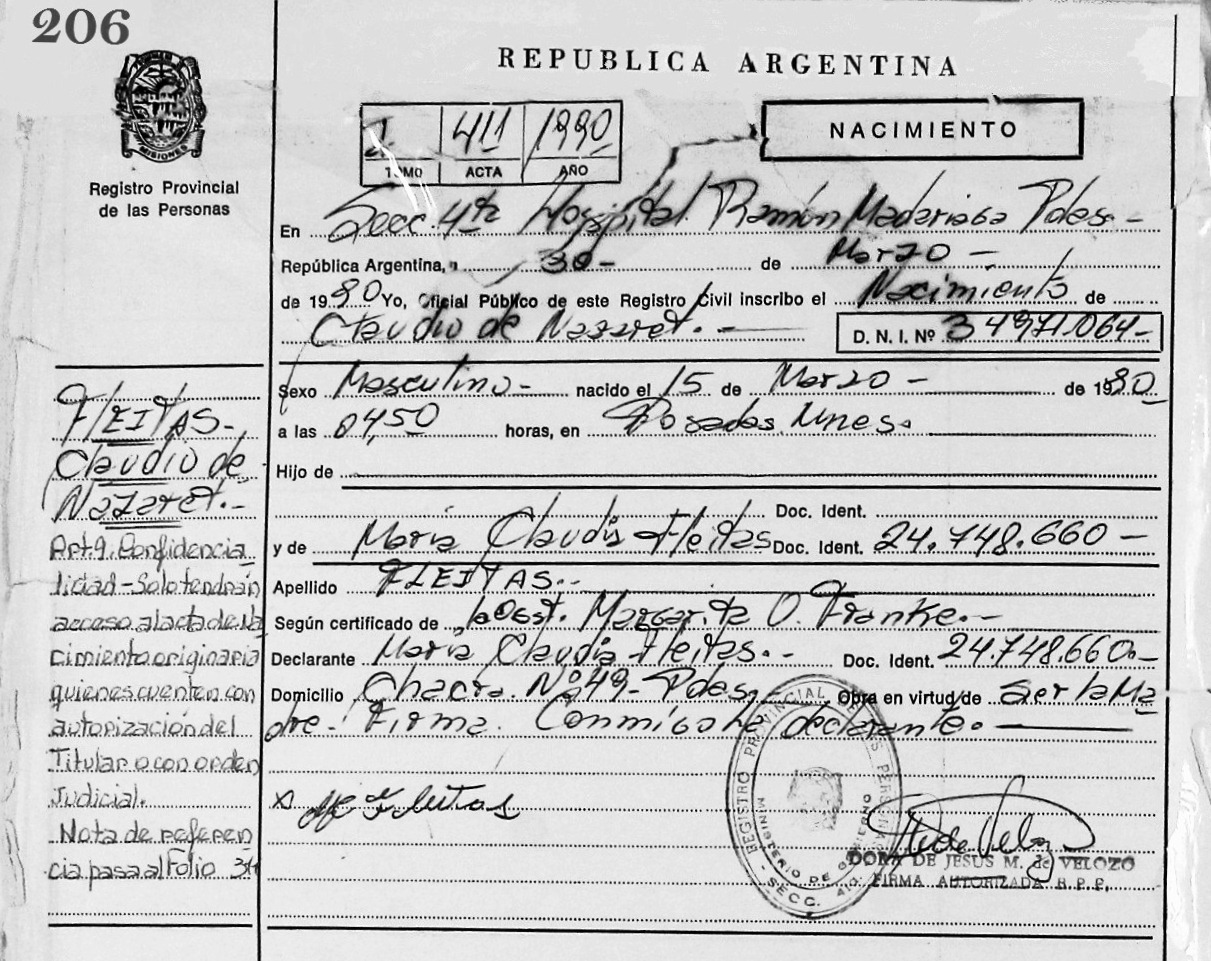 206
MISIONES
Registro Provincial
de las Personas
REPUBLICA ARGENTINA
I. 411 1990
TOMO ACTA AÑO
NACIMIENTO
En Secc. 4ta Hospital Ramón Madariaga Pdas. -
República Argentina, a 30 - de Marzo -
de 1990 Yo, Oficial Público de este Registro Civil inscribo el Nacimiento de
Claudio de Nazaret. - D. N. I. Nº 34971.064 -
Sexo Masculino - nacido el 15 de Marzo - de 1990
a las 04,50 horas, en Posadas, Mnes.
Hijo de
Doc. Ident.
y de María Claudia Fleitas Doc. Ident. 24.748.660 -
Apellido FLEITAS. -
Según certificado de la Obst. Margarita O. Franke. -
Declarante María Claudia Fleitas. - Doc. Ident. 24.748.660 -
Domicilio Chacra Nº 49 - Pdas, Obra en virtud de Ser la Ma
dre - Firma Conmigo la declarante.
FLEITAS -
Claudio de
Nazaret. -
Art. 9. Confidencia
lidad - Solo tendrán
acceso al acta de Na
cimiento originaria
quienes cuenten con
autorización del
Titular o con orden
Judicial.
Nota de referen
cia pasa al Folio
X
REGISTRO PROVINCIAL DE LAS PERSONAS
MINISTERIO DE GOBIERNO
SECC. 4ta.
DORA DE JESUS M. de VELOZO
FIRMA AUTORIZADA R.P.P.